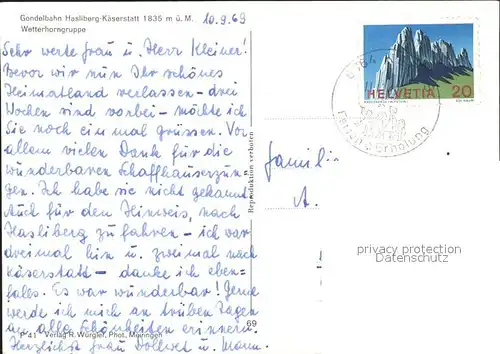 Gondelbahn Hasliberg-Käserstatt 1835 m ü. M.
Wetterhorngruppe
10.9.69
Sehr werte Frau u. Herr Kleiner!
Bevor wir nun Ihr schönes
Heimatland verlassen – drei
Wochen sind vorbei – möchte ich
Sie noch einmal grüssen. Vor
allem vielen Dank für die
wunderbaren Schaffhauserzun-
gen. Ich habe sie nicht gekannt.
Auch für den Hinweis, nach
Hasliberg zu fahren – ich war
dreimal hin u. zweimal nach
Käserstatt – danke ich eben-
falls. Es war wunderbar! Gerne
werde ich mich an trüben Tagen
an alle Schönheiten erinnern.
Herzlichst Frau u. Mann.
P 41 Verlag R. Würgler, Phot. Meiringen
69
Reproduktion verboten
Famili
A.
HELVETIA 20
Ferien Erholung
privacy protection
Datenschutz